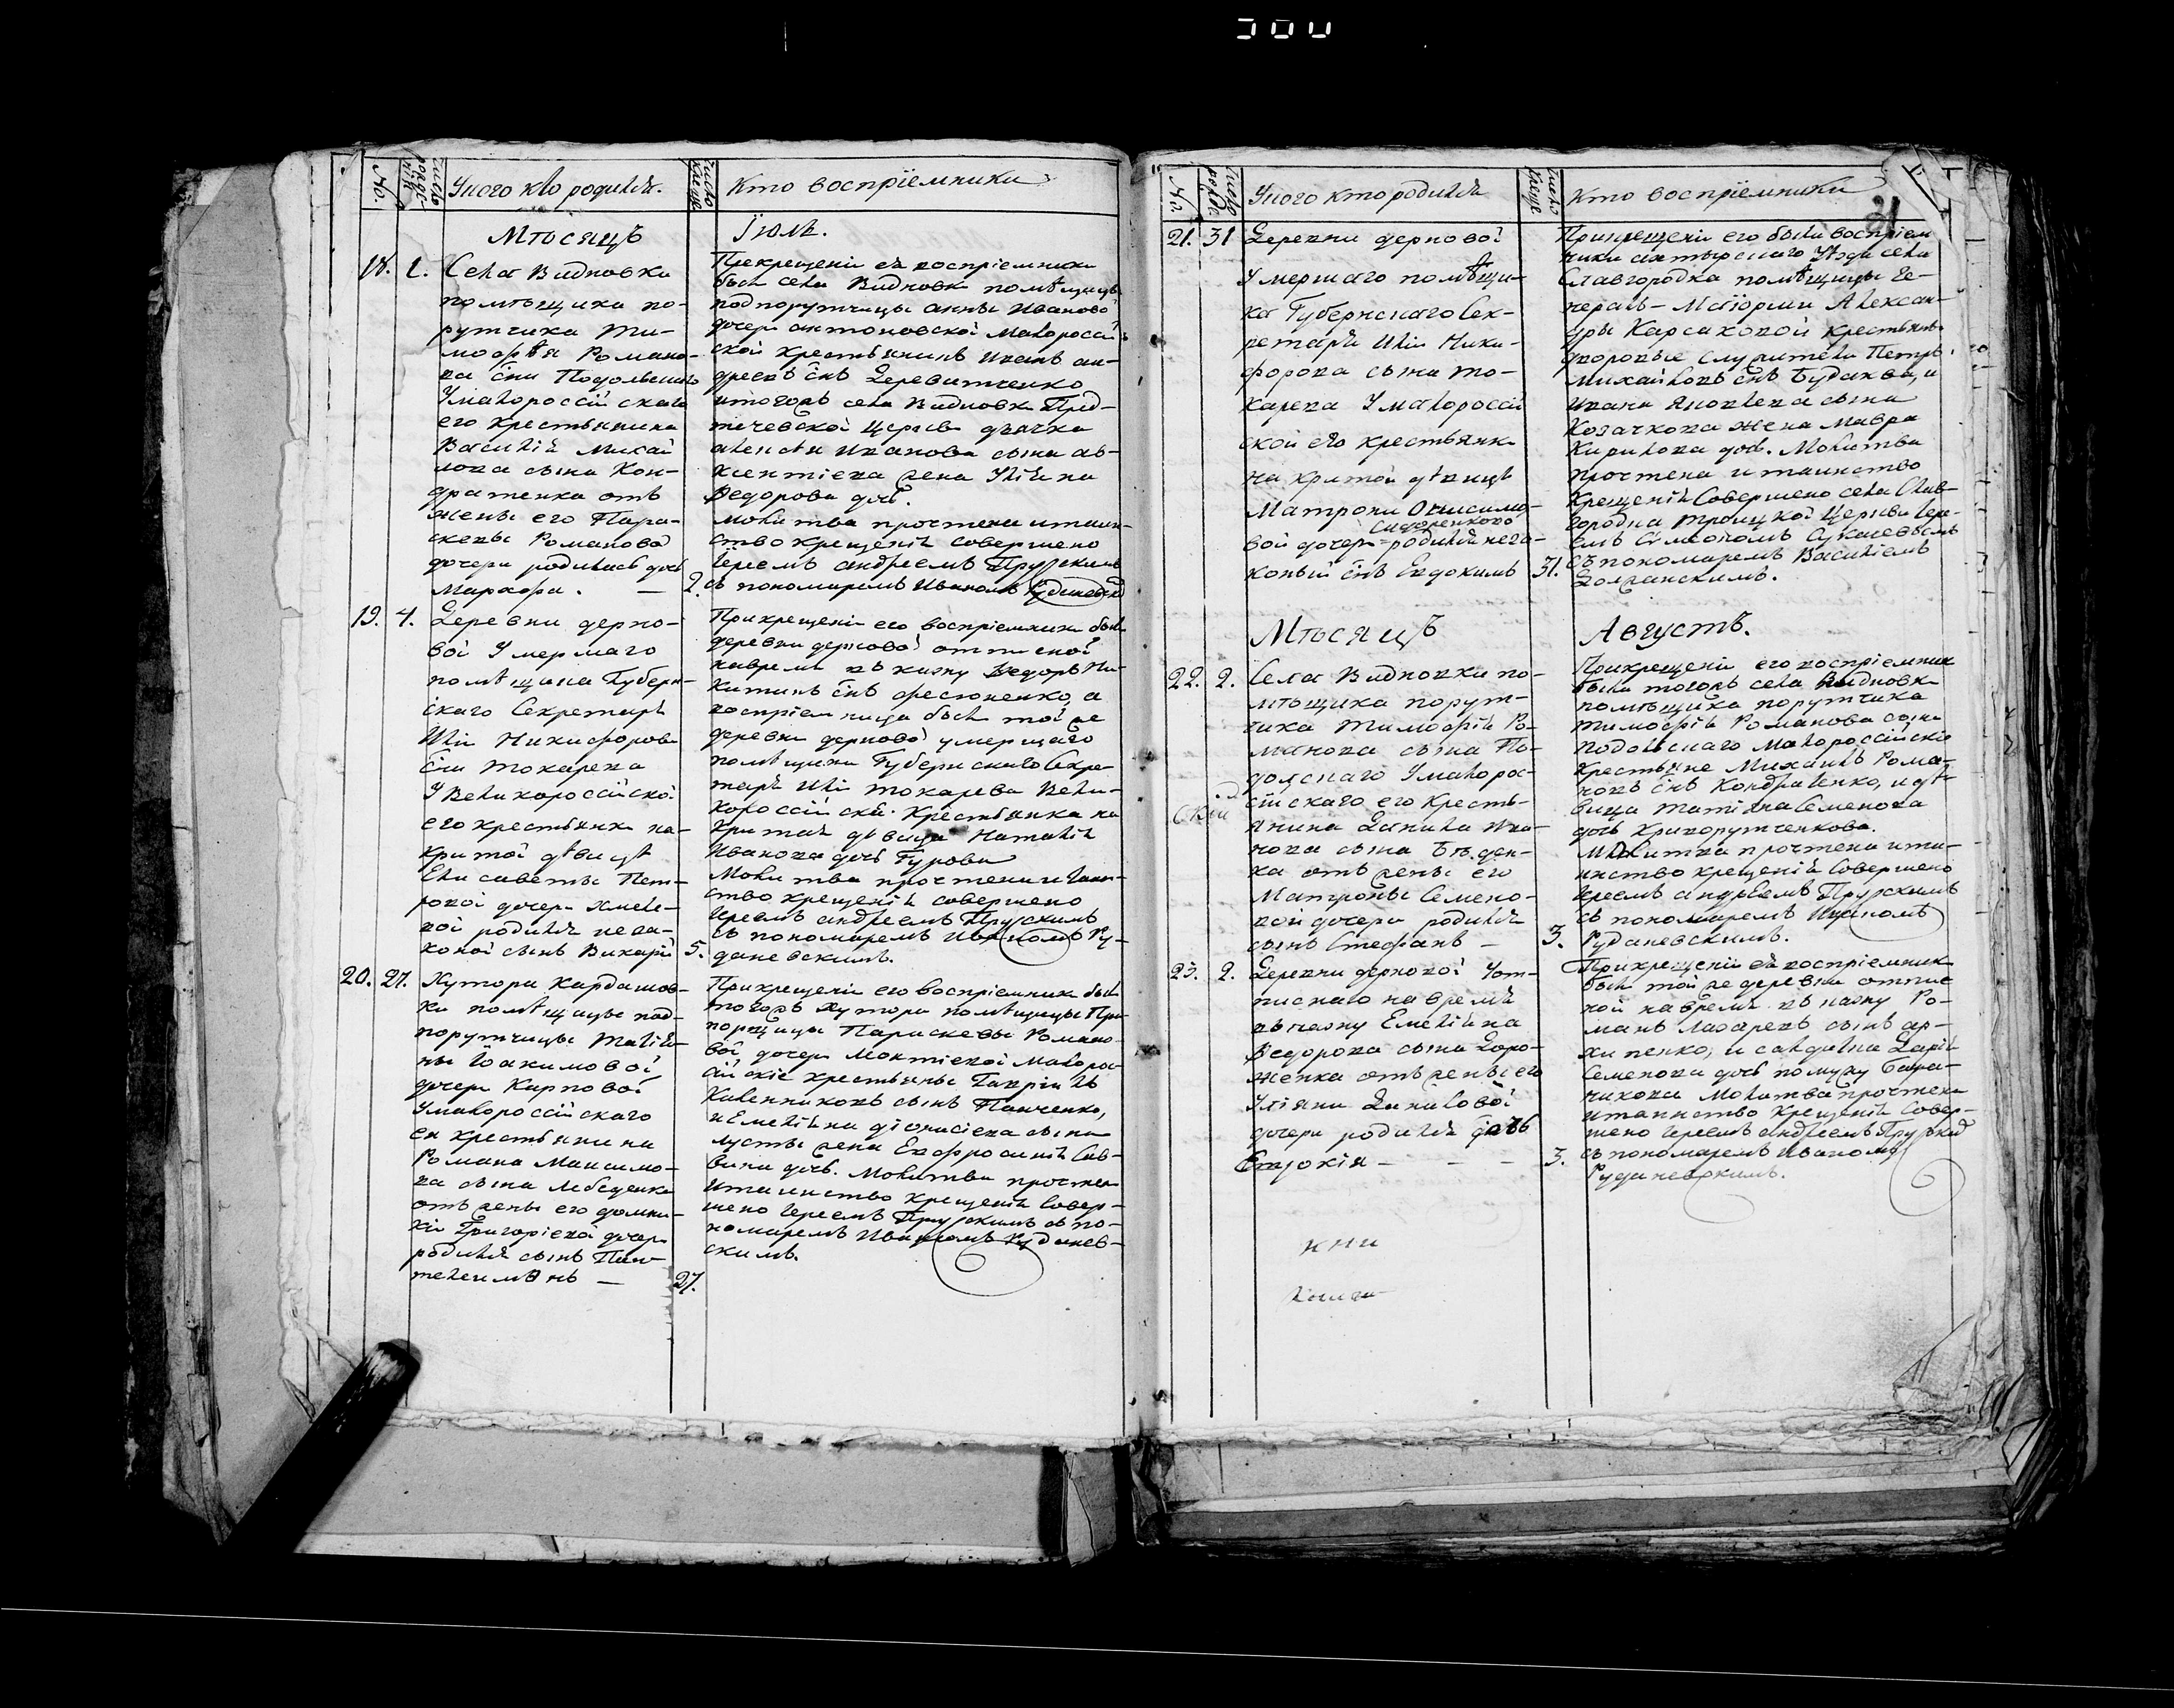 №.
Число рожде-нія
У кого кто родился.
Число Креще
Кто воспріемники
Мѣсяцъ Іюль.
18. 1.
Села Видновки
помѣщика по-
рутчика Ти-
мофѣя Романо-
ва сна Подольскаго
У малороссійскаго
его крестьянина
Василія Михай
лова сына Кон-
дратенка отъ
жены его Пара-
скевы Романовой
дочери родилась дочь
Марфа. — 2.
Прекрещеніи ея воспріемники
были села Видновки помѣщицы
подпорутчицы анны Ивановой
дочери антоновской Малороссій-
ской крестьянинъ Иванъ ан-
дреевъ снъ Деревятченко
итогожъ села Видновки Пред-
течевской Церкви дьячка
алексѣя Иванова сына ав-
ксентіева жена Уліяна
Федорова дочь.
молитва прочтена итаин-
ство крещенія совершено
Іереемъ андреемъ Прускимъ
съ пономаремъ Иваномъ Руданевски
19. 4.
Деревни дерно-
вой Умершаго
помѣщика Губерн-
скаго Секретаря
Иліи Никифорова
сна Токарева
У Великороссійской
его крестьянки на-
критой дѣвицѣ
Елисаветы Пет-
ровой дочери Хмеле-
вой родился неза-
коной сынъ Викарій 5.
Прикрещеніи его воспріемники были
деревни дерновой отписной
навремя въ казну Федоръ Ни-
китинъ снъ фесюненко, а
воспріемница была той же
деревни дерновой умершаго
помѣщика Губернскаго Секре-
таря Иліи Токарева Вели-
короссійска Крестьянка на
критая дѣвица Наталія
Иванова дочь Гурова
Молитва прочтена и таин-
ство крещенія совершено
Іереемъ андреемъ Прускимъ
съ пономаремъ Иваномъ Ру-
даневскимъ.
20. 27.
Хутора Кардашов-
ки помѣщицы под-
порутчицы Татія-
ны Іоакимовой
дочери Карповой
У малороссійскаго
ея крестьянина
Романа Максимо-
ва сына Лебеденка
отъ жены его домни-
кіи Григоріевой дочери
родился сынъ Пан-
телеимонъ — 27.
Прикрещеніи его воспріемники были
тогожъ хутора помѣщицы Пра
порщицы Параскевы Романо-
вой дочери Малорос-
сійскіе крестьяне Гавріилъ
Калениковъ сынъ Панченко,
и Емеліяна діонисіева сына
жена Евфросинія Сав-
вина дочь. Молитва прочтена
итаинство крещенія Совер-
шено Іереемъ Прускимъ съ по-
номаремъ Иваномъ Руданев-
скимъ.
№.
Число рожде
У кого кто родился
Число Креще
Кто воспріемники
21. 31
Деревни дерновой
Умершаго помѣщи-
ка Губернскаго Сек-
ретаря Иліи Ники-
форова сына То-
карева У малороссій
ской его крестьянки
на критой дѣвицѣ
Матроны Онисимо-
Сидоренковой
вой дочери родился неза-
коный снъ Евдокимъ 31.
Прикрещеніи его были воспріем
ники ахтырскаго Уѣзда села
Славгородка помѣщицы Ге-
нералъ-Маіорши Алексан-
дры Карсаковой крестьяне
дворовые служители Петръ
Михайловъ снъ Будаква, и
Ивана Яковлева сына
Козачкова жена Мавра
Кирилова дочь. Молитва
прочтена и таинство
Крещенія Совершено села Слав-
городка Троицкой Церкви Іере-
емъ Симеономъ
съ пономаремъ Василіемъ
Должанскимъ.
Мѣсяцъ Августъ.
22. 2.
Села Видновки по-
мѣщика порут-
чика Тимофѣя Ро-
манова сына По-
долскаго У малорос-
сійскаго его Кресть-
янина Данила Ива-
нова сына Бѣ.ден-
ка отъ жены его
Матроны Семено-
вой дочери родился
сынъ Стефанъ — 3.
Прикрещеніи его воспріемники
были тогожъ села Видновки
помѣщика порутчика
Тимофѣя Романова сына
Подольскаго Малороссійскіе
Крестьяне Михаилъ Рома-
новъ снъ Кондратенко, и дѣ-
вица Татіяна Семенова
дочь Криворутченкова.
Молитва прочтена ита-
инство крещенія Совершено
Іереемъ андреемъ Прускимъ
съ пономаремъ Иваномъ
Руданевскимъ.
23. 2.
Деревни дерновой Уот-
писнаго на время
въ казну Емеліяна
Федорова сына Доро-
женка отъ жены его
Уліяны Даниловой
дочери родилася дочь
Евдокія — — — 3.
Прикрещеніи ея воспріемник
были той же деревни отпис
ной на время въ казну Ро-
манъ Лазаревъ сынъ ар-
хипенко, и солдатка Дарія
Семенова дочь по мужу
Молитва прочтена
итаинство Крещенія Совер-
шено Іереемъ андреемъ Прускимъ
съ пономаремъ Иваномъ
Руданевскимъ.
кни